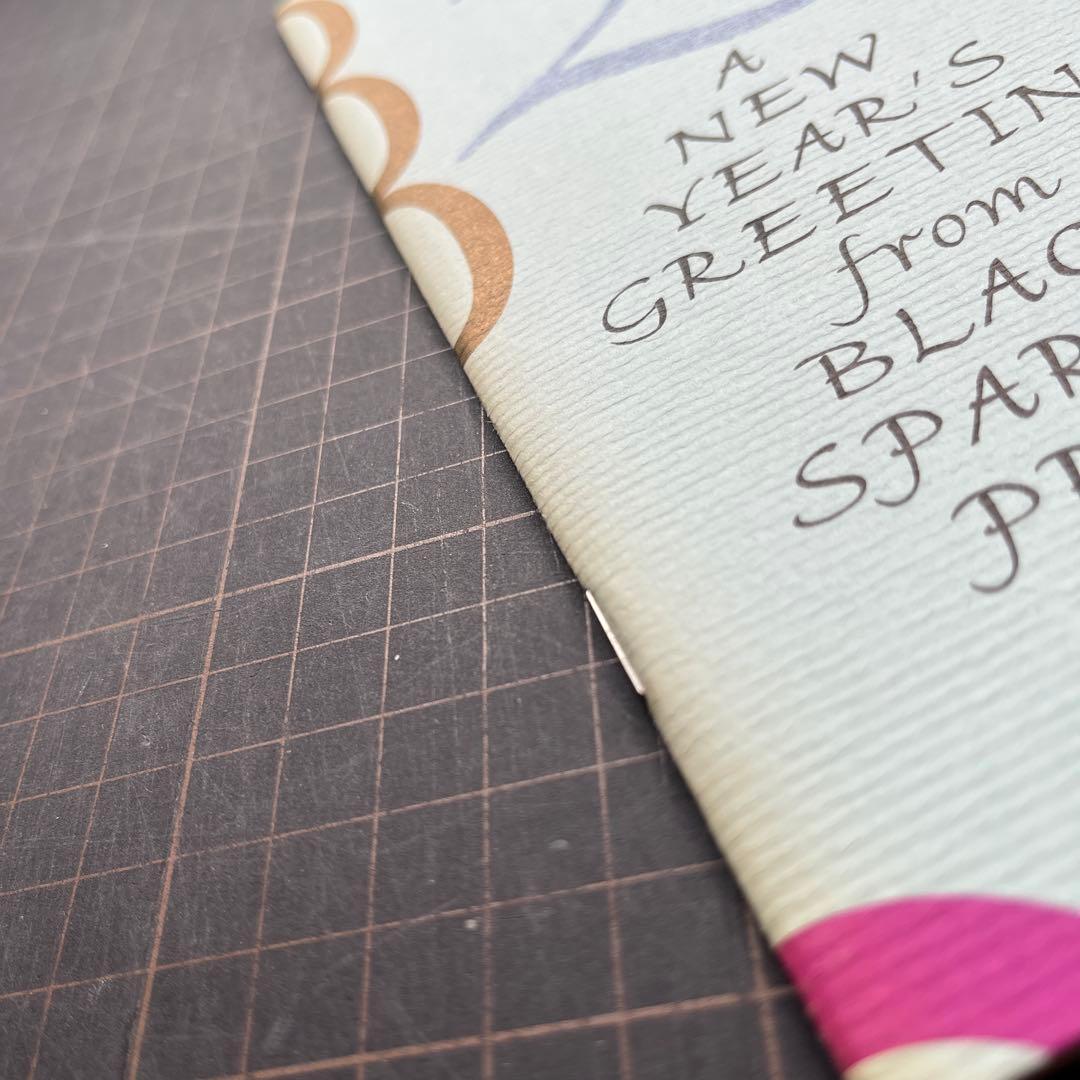 A
NEW
YEAR'S
GREETIN
from
BLAC
SPAR